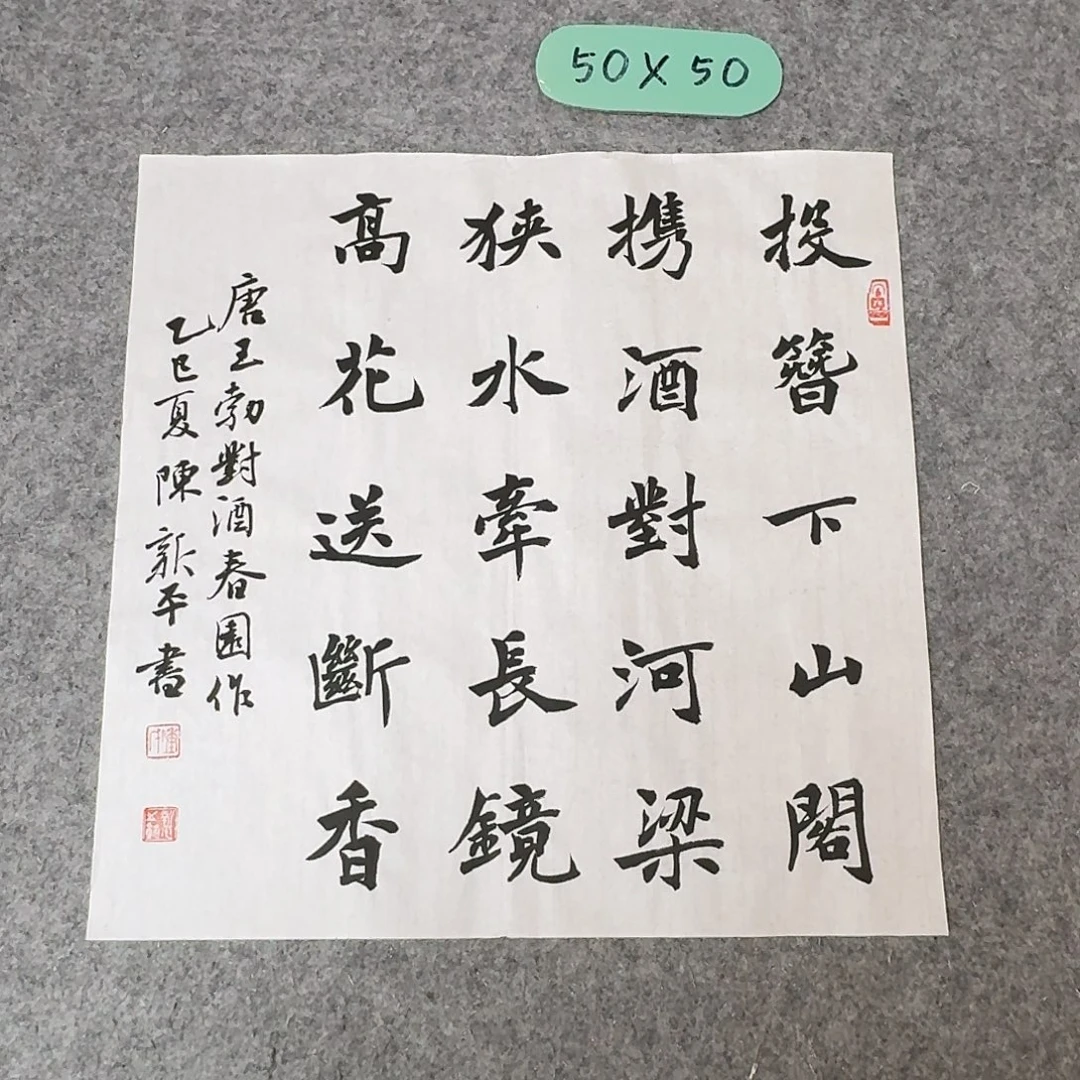 50X50
投簪下山閣
携酒對河梁
狭水牽長鏡
高花送斷香
唐王勃對酒春園作
乙巳夏陳新平書